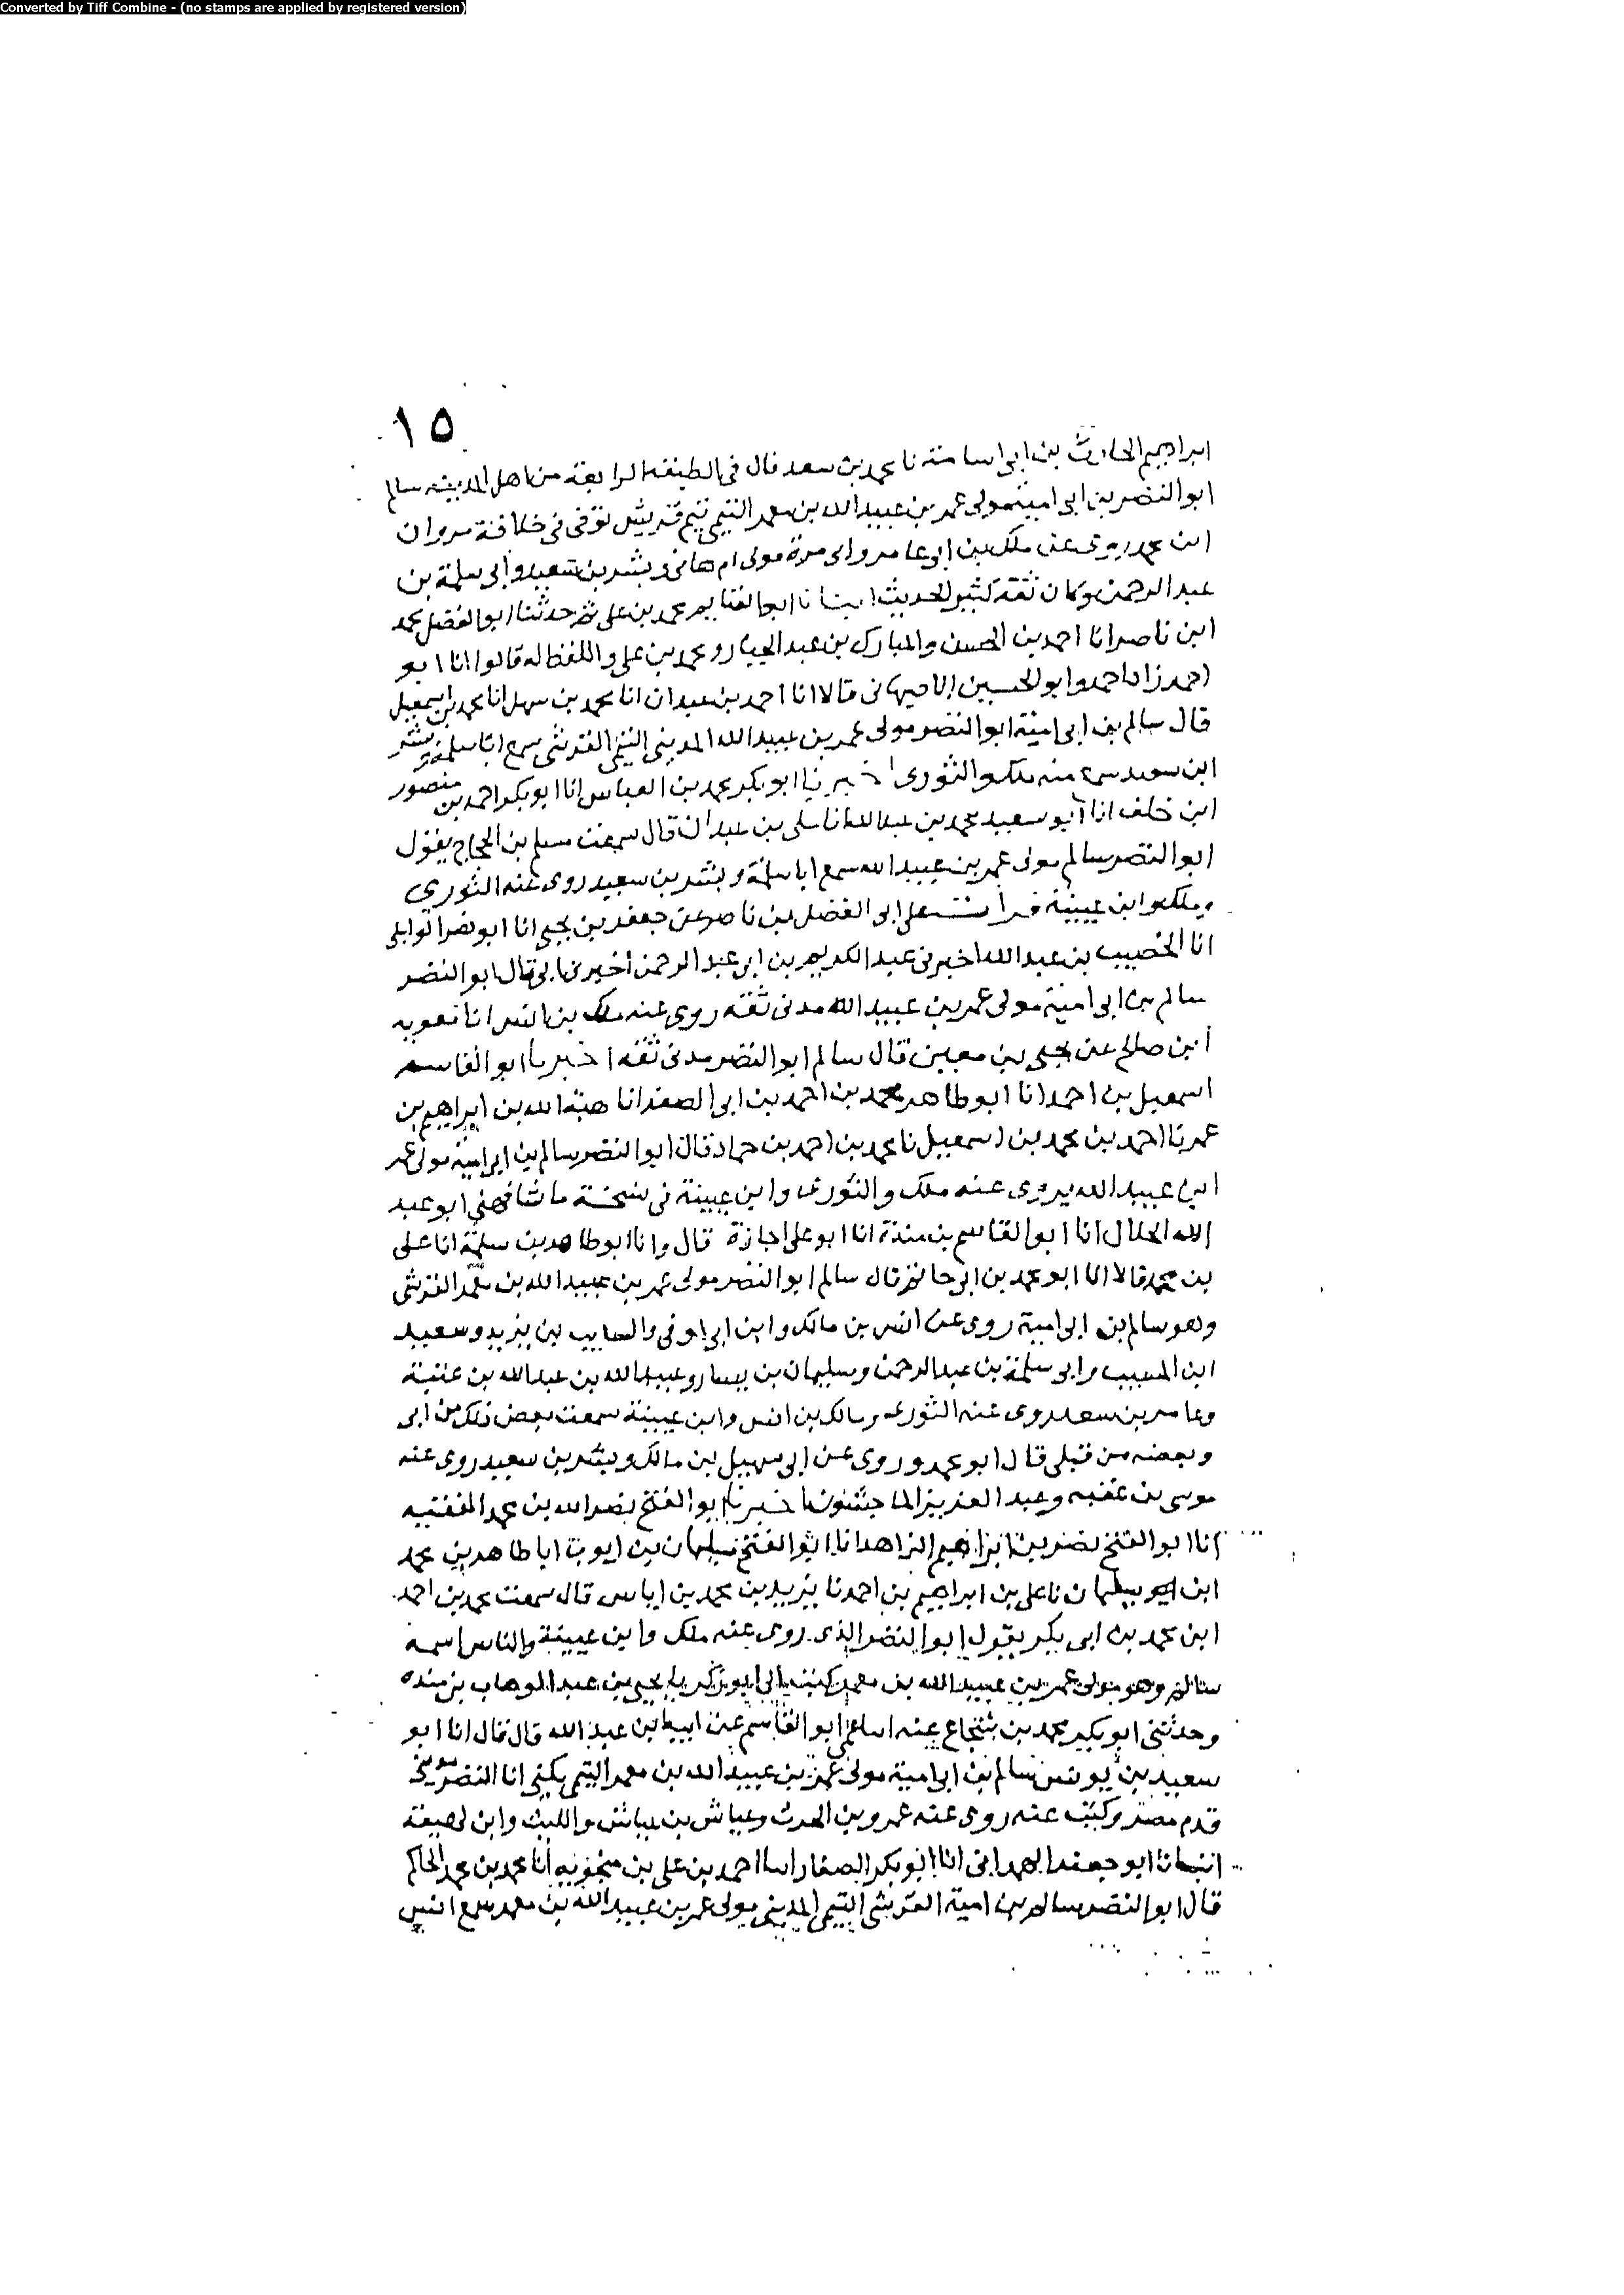 Converted by Tiff Combine - (no stamps are applied by registered version)
١٥
ابراهيم الحارث بن ابى اسامة نا محمد بن سعد قال فى الطبقة الرابعة من اهل المدينة سالم
ابو النضر بن ابى امية مولى عمر بن عبيد الله بن معمر التيمى تيم قريش توفى فى خلافة مروان
ابن محمد روى عن ملك بن ابى عامر وابى مرة مولى ام هانى وبشر بن سعيد وابى سلمة بن
عبد الرحمن وكان ثقة كثير الحديث انبانا ابو الغنايم محمد بن على ثم حدثنا ابو الفضل محمد
ابن ناصر انا احمد بن الحسن والمبارك بن عبد الجبار ومحمد بن على واللفظ له قالوا انا ابو
احمد زاد احمد وابو الحسين الاصبهانى قالا انا احمد بن عبدان انا محمد بن سهل انا محمد بن اسمعيل
قال سالم بن ابى امية ابو النضر مولى عمر بن عبيد الله المدينى التيمى القرشى سمع ابا سلمة وبشر
ابن سعيد سمع منه ملك والثورى اخبرنا ابو بكر محمد بن العباس انا ابو بكر احمد بن منصور
ابن خلف انا ابو سعيد محمد بن عبد الله انا مكى بن عبدان قال سمعت مسلم بن الحجاج يقول
ابو النضر سالم مولى عمر بن عبيد الله سمع ابا سلمة وبشر بن سعيد روى عنه الثورى
وملك وابن عيينة قرأت على ابى الفضل بن ناصر عن جعفر بن يحيى انا ابو نصر الوايلى
انا الخصيب بن عبد الله اخبرنى عبد الكريم بن ابى عبد الرحمن اخبرنى ابى قال ابو النضر
سالم بن ابى امية مولى عمر بن عبيد الله مدنى ثقة روى عنه ملك بن انس انا معوية
ابن صالح عن يحيى بن معين قال سالم ابو النضر مدنى ثقة اخبرنا ابو القاسم
اسمعيل بن احمد انا ابو طاهر محمد بن احمد بن ابى الصقر انا هبة الله بن ابراهيم بن
عمر نا احمد بن محمد بن اسمعيل نا محمد بن احمد بن حماد قال ابو النضر سالم بن ابى امية مولى عمر
ابن عبيد الله يروى عنه ملك والثورى وابن عيينة فى نسخة ما شافهنى ابو عبد
الله الخلال انا ابو القاسم بن مندة انا ابو على اجازة قال وانا ابو طاهر بن سلمة انا على
بن محمد قالا انا ابو محمد بن ابى حاتم قال سالم ابو النضر مولى عمر بن عبيد الله بن معمر القرشى
وهو سالم بن ابى امية روى عن انس بن مالك وابن ابى اوفى والسايب بن يزيد وسعيد
ابن المسيب وابى سلمة بن عبد الرحمن وسليمان بن يسار وعبيد الله بن عبد الله بن عتبة
وعامر بن سعد روى عنه الثورى ومالك بن انس وابن عيينة سمعت بعض ذلك من ابى
وبعضه من قبلى قال ابو محمد وروى عن ابى سهيل بن مالك وبشر بن سعيد روى عنه
موسى بن عقبة وعبد العزيز الماجشون اخبرنا ابو الفتح نصر الله بن محمد الفقيه
انا ابو الفتح نصر بن ابراهيم الزاهد انا ابو الفتح سليمان بن ايوب ابا طاهر بن محمد
ابن سليمان نا على بن ابراهيم بن احمد نا يزيد بن محمد بن اياس قال سمعت محمد بن احمد
ابن محمد بن ابى بكر يقول ابو النضر الذى روى عنه ملك وابن عيينة والناس اسمه
سالم وهو مولى عمر بن عبيد الله بن معمر كتب الى ابو زكريا يحيى بن عبد الوهاب بن منده
وحدثنى ابو بكر محمد بن شجاع عنه ابو القاسم عن ابيه بن عبد الله قال قال انا ابو
سعيد بن يونس سالم بن ابى امية مولى عمر بن عبيد الله بن معمر التيمى يكنى ابا النضر
قدم مصر وكتب عنه روى عنه عمرو بن الحرث وعياش بن عباس والليث وابن لهيعة
انبانا ابو جعفر الهمدانى انا ابو بكر الصفار انا احمد بن على بن منجويه انا محمد بن محمد الحاكم
قال ابو النضر سالم بن امية القرشى التيمى المدينى مولى عمر بن عبيد الله بن معمر سمع انس